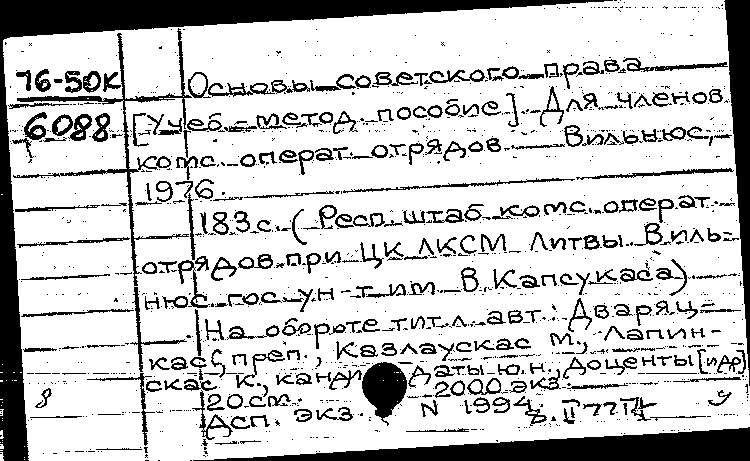 76-50К Основы советского права
6088 [Учеб.-метод. пособие]. Для членов
комс. операт. отрядов. Вильнюс,
1976.
183 с. (Респ. штаб комс. операт.
отрядов при ЦК ЛКСМ Литвы. Виль-
нюс. гос. ун-т им. В. Капсукаса)
На обороте тит. л. авт.: Дваряц-
кас С, преп., Казлаускас М., Лапин-
скас К., кандидаты ю. н., доценты [и др]
8 20 см. 2000 экз.
Дсп. экз. N 1994